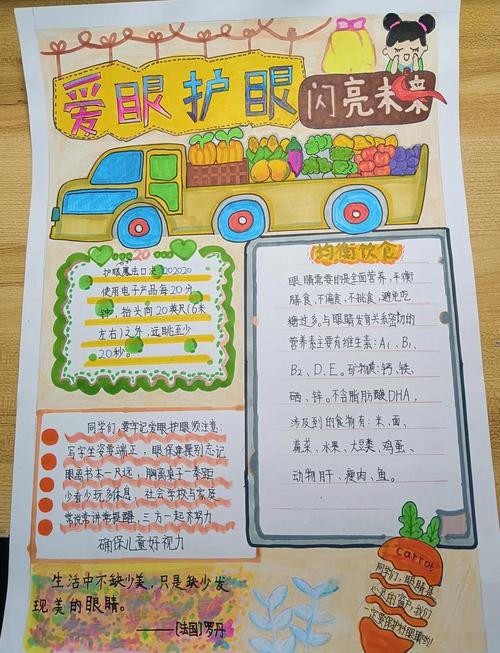 爱眼护眼
闪亮未来
20
护眼魔法口决202020
使用电子产品每20分
钟，抬头向20英尺(6米
左右)之外，远眺至少
20秒。
均衡饮食
眼睛需要的是全面营养，均衡
膳食、不偏食、不挑食，避免吃
糖过多。与眼睛发育关系密切的
营养素主要有维生素：A、B1、
B2、D、E。矿物质：钙、铁、
硒、锌。不含脂肪酸DHA，
涉及到的食物有：米、面、
蔬菜、水果、大豆类、鸡蛋、
动物肝、瘦肉、鱼。
同学们，要牢记爱眼护眼须注意：
写字坐姿要端正，眼保健操别忘记
眼离书本一尺远，胸离桌子一拳距
少看少玩多休息，社会学校与家庭
常说常讲常提醒，三方一起齐努力
确保儿童好视力
生活中不缺少美，只是缺少发
现美的眼睛。
——[法国]罗丹
carrot
同学们，眼睛是
心灵的窗户，我们
一定要保护好眼睛哟！